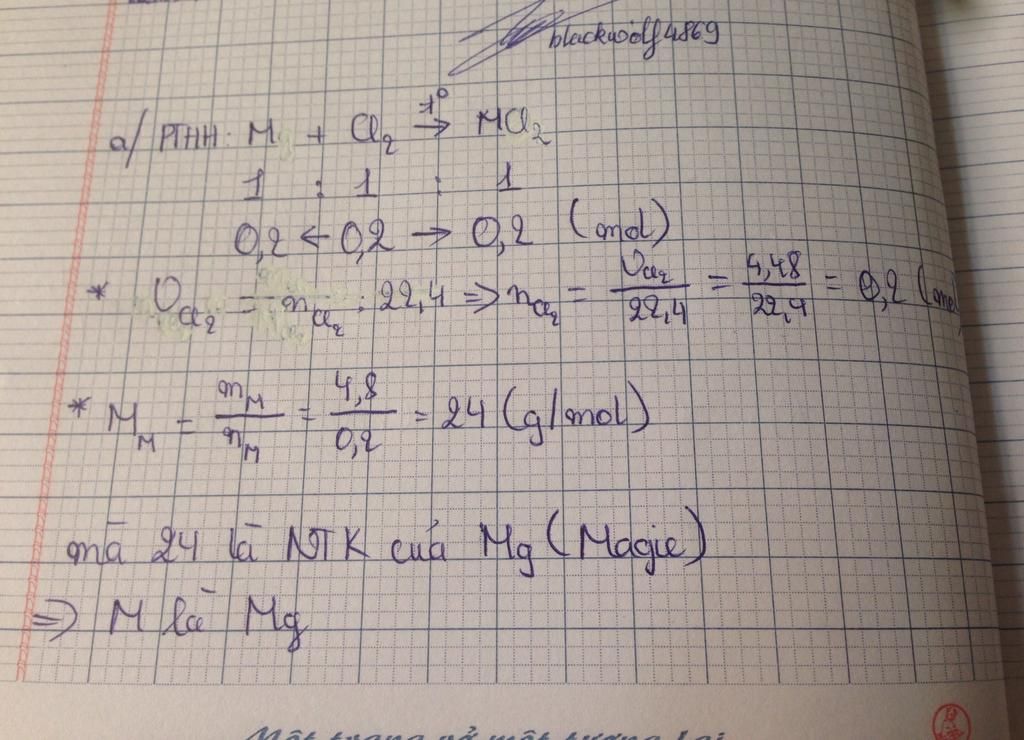 blackwolf4869
a/ PTHH: M + Cl₂ →(t°) MCl₂
1 : 1 : 1
0,2 ← 0,2 → 0,2 (mol)
* V_Cl₂ = n_Cl₂ . 22,4 => n_Cl₂ = V_Cl₂/22,4 = 4,48/22,4 = 0,2 (mol)
* M_M = m_M/n_M = 4,8/0,2 = 24 (g/mol)
mà 24 là NTK của Mg (Magie)
=> M là Mg